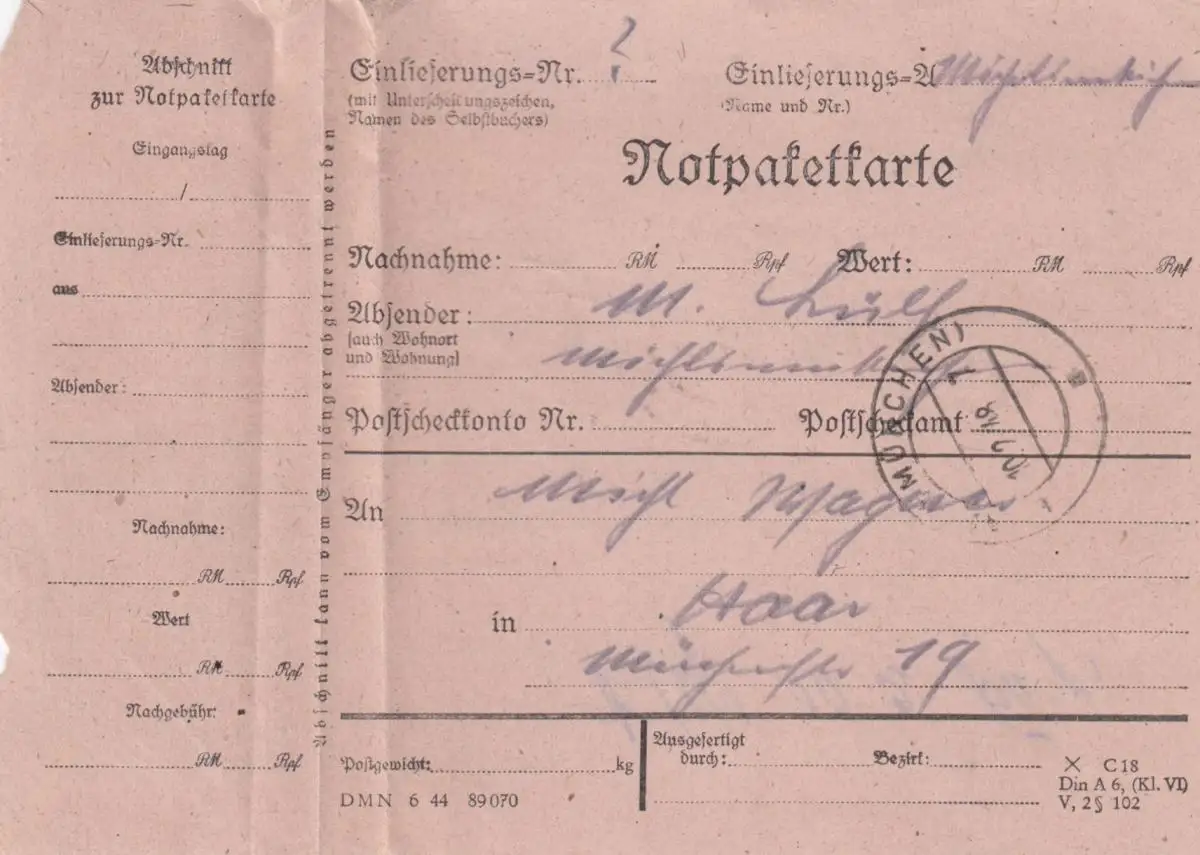 Abschnitt
zur Notpaketkarte
Eingangstag
/
Einlieferungs-Nr.
aus
Absender:
Nachnahme:
RM Rpf
Wert
RM Rpf
Nachgebühr:
RM Rpf
Abschnitt kann vom Empfänger abgetrennt werden
Einlieferungs-Nr. ?
(mit Unterscheitungszeichen,
Namen des Selbstbuchers)
Einlieferungs-A
(Name und Nr.)
Notpaketkarte
Nachnahme: RM Rpf Wert: RM Rpf
Absender: M.
[auch Wohnort
und Wohnung]
Postscheckkonto Nr. Postscheckamt
MÜNCHEN)
An Michl Wagner
in Haar
19
Postgewicht: kg
DMN 6 44 89070
Ausgefertigt
durch: Bezirk:
X C18
Din A 6, (Kl. VI)
V, 2 § 102